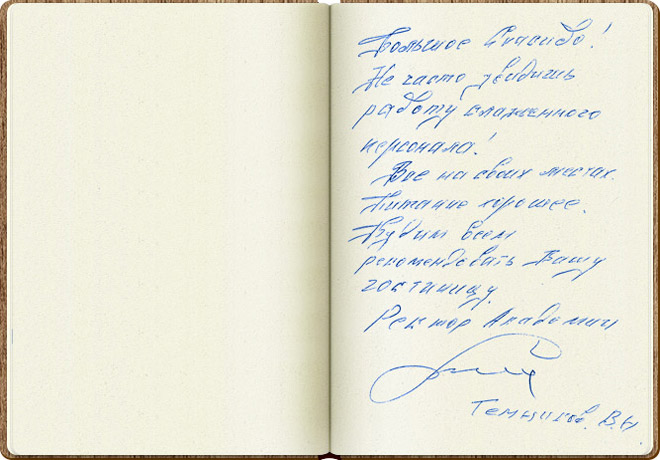 Большое Спасибо!
Не часто увидишь
работу слаженного
персонала!
Все на своих местах.
Питание хорошее.
Будим всем
рекомендовать Вашу
гостиницу.
Ректор Академии
В.Н.